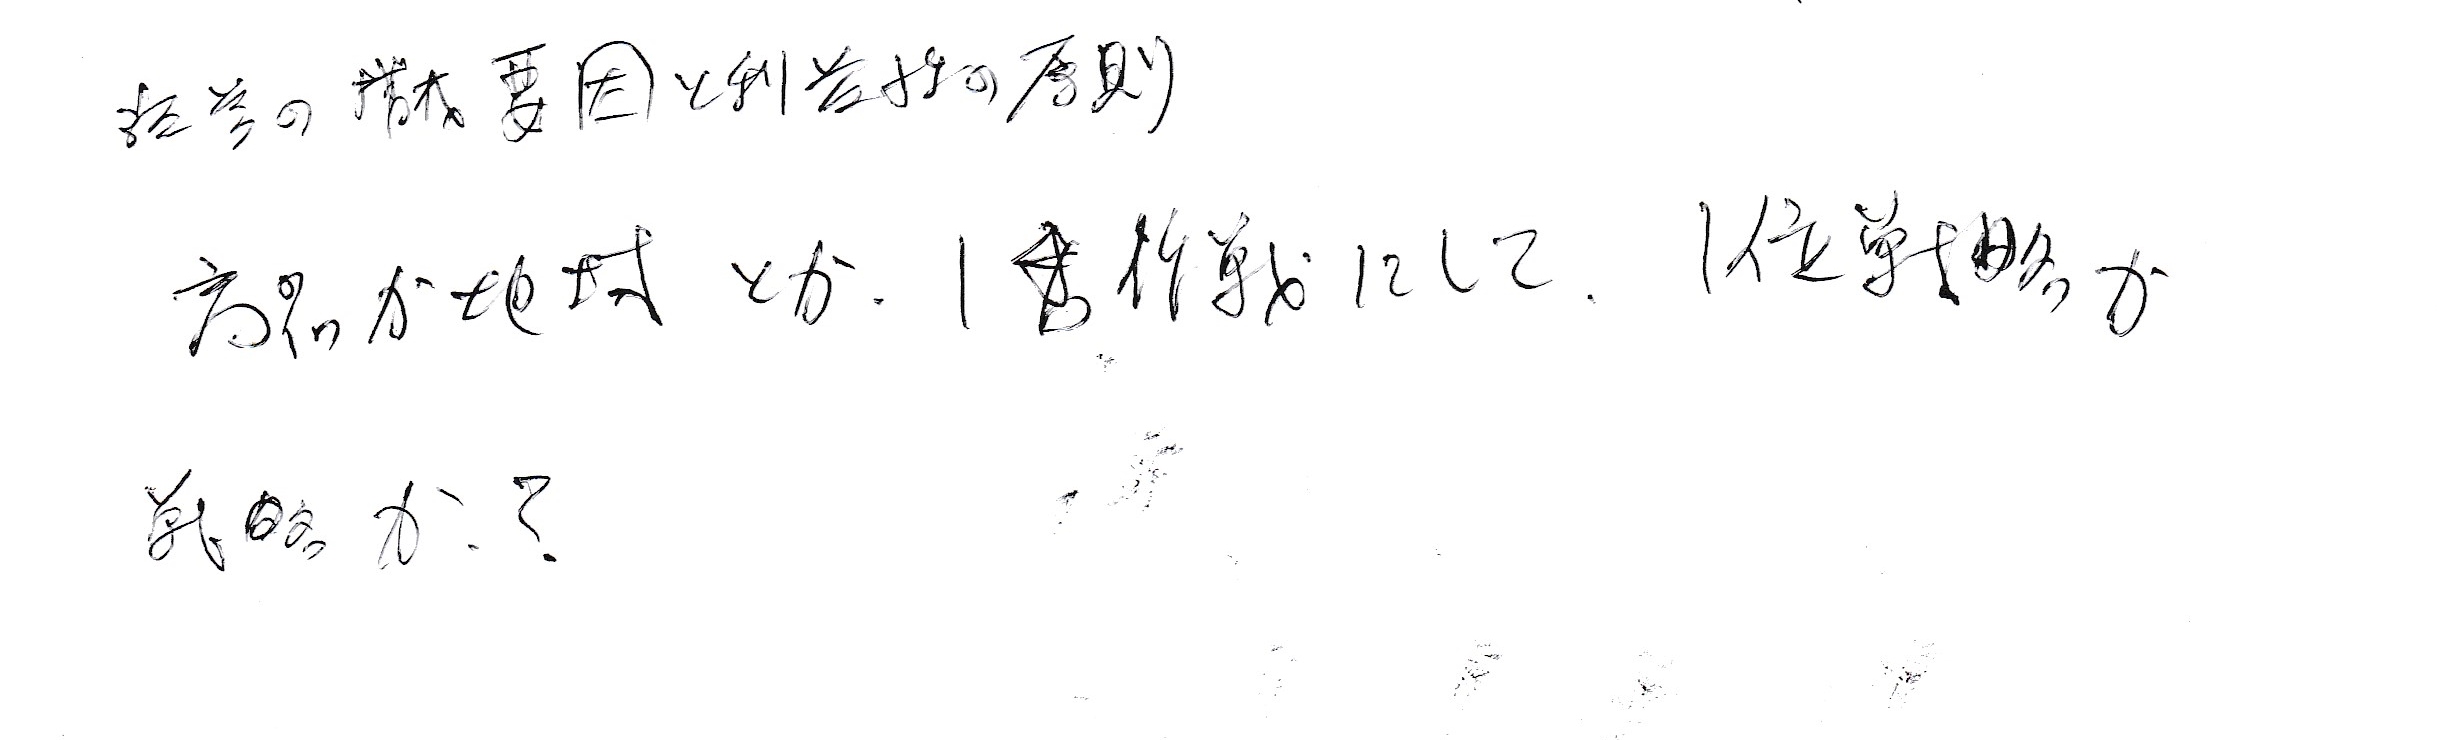 経営の構成要因と利益性の原則
商品か地域とか.1番作戦にして.1位戦略か
戦略か.?